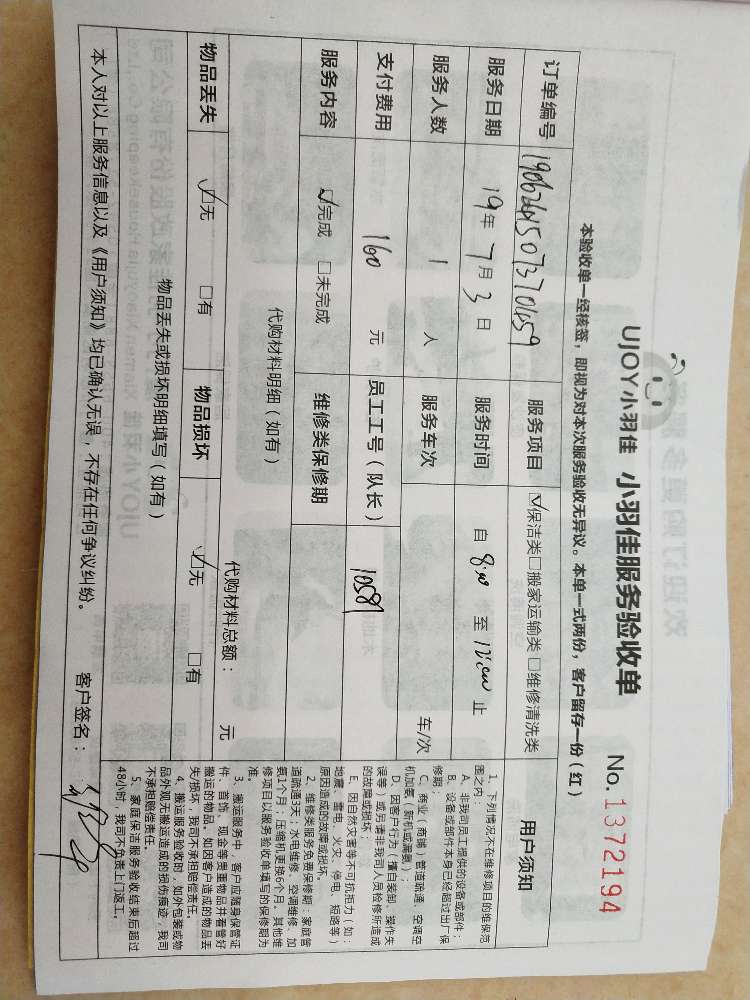 UJOY小羽佳 小羽佳服务验收单 No. 1372194
本验收单一经核签，即视为对本次服务验收无异议。本单一式两份，客户留存一份（红）
订单编号 服务项目 ☑保洁类□搬家运输类□维修清洗类
服务日期 19年 7月 3日 服务时间 自 8:00 至 12:00 止
服务人数 1 人 服务车次 车/次
支付费用 160 元 员工工号（队长） 10589
服务内容 ☑完成 □未完成 维修类保修期
代购材料明细（如有）
代购材料总额： 元
物品丢失 ☑无 □有 物品损坏 ☑无 □有
物品丢失或损坏明细填写（如有）
本人对以上服务信息以及《用户须知》均已确认无误，不存在任何争议纠纷。 客户签名：
用户须知
1、下列情况不在维修项目的维保范
围之内：
A、非我司员工提供的设备或部件；
B、设备或部件本身已经超过出厂保
修期；
C、商业（商铺）管道疏通、空调空
机加氨（新机或漏氨）；
D、因客户行为（擅自装卸、操作失
误等）或另请非我司人员检修所造成
的故障或损坏；
E、因自然灾害等不可抗拒力（如：
地震、雷电、火灾、停电、短路等）
原因造成的故障或损坏。
2、维修类服务免费保修期：家庭管
道疏通3天；水电维修、空调维修、加
氨1个月；压缩机更换6个月。其他维
修项目以服务验收单填写的保修期为
准。
3、搬运服务中，客户应随身保管证
件、首饰、现金等贵重物品并看管好
搬运的物品。如因客户造成的物品丢
失/损坏，我司不承担赔偿责任。
4、搬运服务验收时，如外包装或物
品外观无搬运造成的损伤痕迹，我司
不承担赔偿责任。
5、家庭保洁服务验收结束后超过
48小时，我司不负责上门返工。